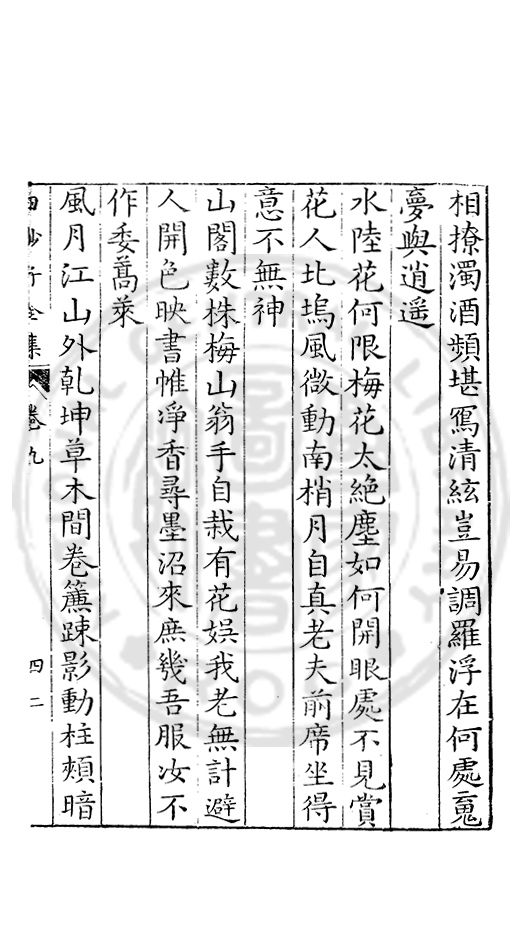 相撩濁酒頻堪寫清絃豈易調羅浮在何處䰟
夢與逍遥
水陸花何限梅花太絶塵如何開眼處不見賞
花人北塢風微動南梢月自真老夫前席坐得
意不無神
山閣數株梅山翁手自栽有花娯我老無計避
人開色映書帷凈香尋墨沼來庶幾吾服汝不
作委蒿萊
風月江山外乹坤草木間卷簾踈影動柱頰暗
白沙子全集 卷九 四二